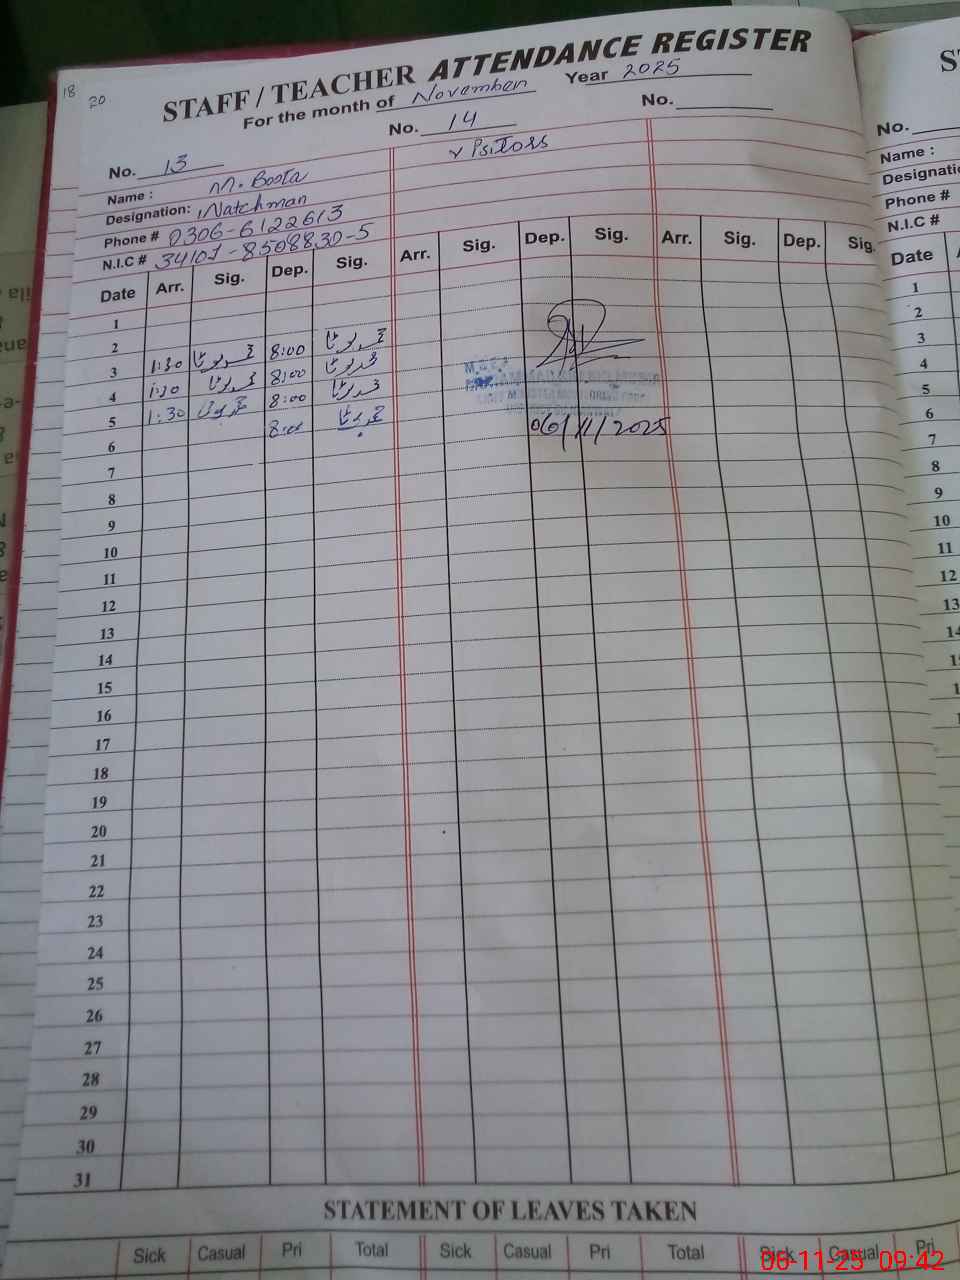 18 20
STAFF / TEACHER ATTENDANCE REGISTER
For the month of November Year 2025
No. 13 No. 14 No.
Name : M. Boota
Designation: Watchman
Phone # 0306-6122613
N.I.C #
Date Arr. Sig. Dep. Sig. Arr. Sig. Dep. Sig. Arr. Sig. Dep. Sig.
1
2
3 1:30 محمد بوٹا 8:00 محمد بوٹا
4 1:30 محمد بوٹا 8:00 محمد بوٹا
5 1:30 محمد بوٹا 8:00 محمد بوٹا
6 8:00 محمد بوٹا
06/11/2025
7
8
9
10
11
12
13
14
15
16
17
18
19
20
21
22
23
24
25
26
27
28
29
30
31
STATEMENT OF LEAVES TAKEN
Sick Casual Pri Total Sick Casual Pri Total Sick Casual Pri
No.
Name :
Phone #
N.I.C #
Date
1
2
3
4
5
6
7
8
9
10
11
12
13
06-11-25 09:42